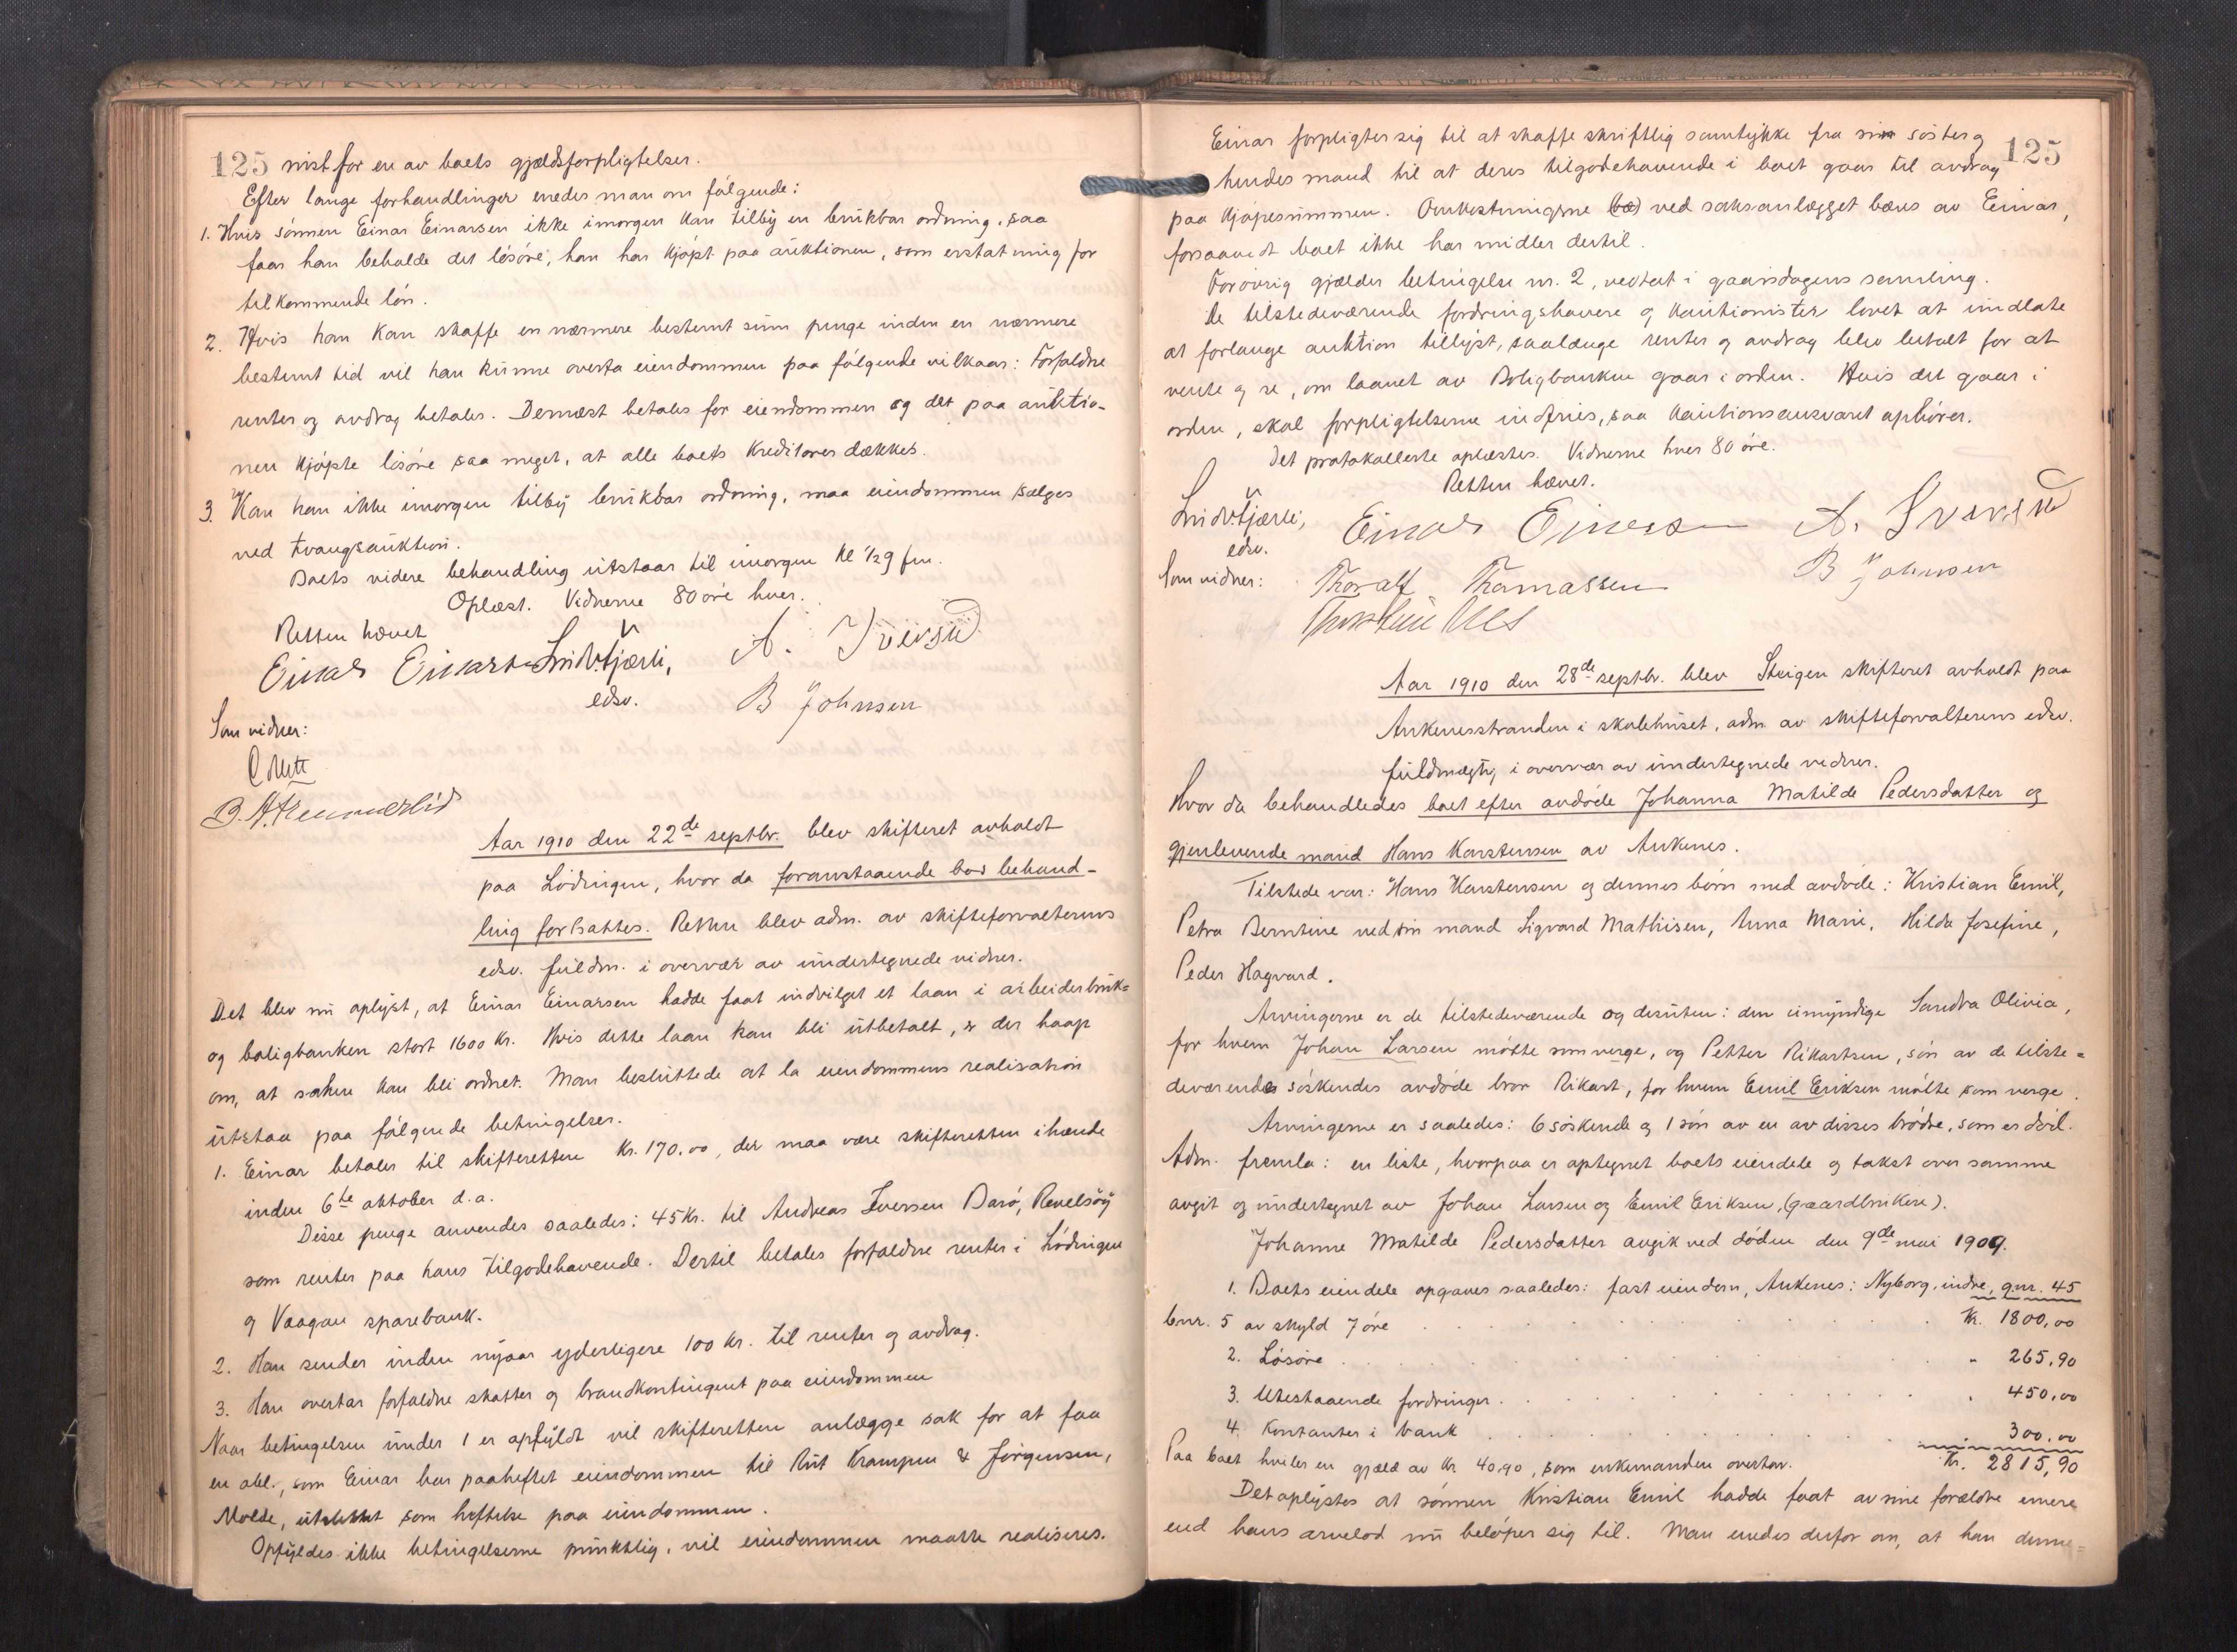 125 nist for en av boets gjældsforpligtelser.
Efter lange forhandlinger enedes man om følgende:
1. Hvis sønnen Einar Einarsen ikke imorgen kan tilby en brukbar ordning, saa
faar han beholde det løsøre, han har kjøpt paa auktionen, som erstatning for
tilkommende løn.
2. Hvis han kan skaffe en nærmere bestemt sum penge inden en nærmere
bestemt tid vil han kunne overta eiendommen paa følgende vilkaar: Forfaldne
renter og avdrag betales. Dernæst betales for eiendommen og det paa auktio-
nen kjøpte løsøre saa meget, at alle boets kreditorer dækkes.
3. Kan han ikke imorgen tilby brukbar ordning, maa eiendommen sælges
ved tvangsauktion.
Boets videre behandling utstaar til imorgen kl ½9 fm.
Oplæst. Vidnerne 80 øre hver.
Retten hævet
Einar Einarsen Lindv. Fjærli, A. Iversen
edsv. B Johnsen
Som vidner:
Collett
B. H. Hemmerlid
Aar 1910 den 22de septbr. blev skifteret avholdt
paa Lödingen, hvor da foranstaaende bos behand-
ling fortsattes. Retten blev adm. av skifteforvalterens
edsv. fuldm. i overvær av undertegnede vidner.
Det blev nu oplyst, at Einar Einarsen hadde faat indvilget et laan i arbeiderbruk=
og boligbanken stort 1600 kr. Hvis dette laan kan bli utbetalt, er der haap
om, at saken kan bli ordnet. Man besluttede at la eiendommens realisation
utstaa paa følgende betingelser.
1. Einar betaler til skifteretten kr. 170.00, der maa være skifteretten ihænde
inden 6te oktober d.a.
Disse penge anvendes saaledes: 45 Kr. til Andreas Iversen Barø, Revelsøy
som renter paa hans tilgodehavende. Dertil betales forfaldne renter i Lødingen
og Vaagan sparebank.
2. Han sender inden nyaar yderligere 100 kr. til renter og avdrag.
3. Han overtar forfaldne skatter og brandkontingent paa eiendommen
Naar betingelsen under 1 er opfyldt vil skifteretten anlægge sak for at faa
en obl., som Einar har paaheftet eiendommen til Rut Krampen & Jørgensen,
Molde, utslettet som heftelse paa eiendommen.
Opfyldes ikke betingelserne punktlig, vil eiendommen maatte realiseres.
125
Einar forpligter sig til at skaffe skriftlig samtykke fra sin søster og
hendes mand til at deres tilgodehavende i boet gaar til avdrag
paa kjøpesummen. Omkostningerne (bæ) ved saksanlægget bæres av Einar,
forsaavidt boet ikke har midler dertil.
Forøvrig gjælder betingelse nr. 2, vedtat i gaarsdagens samling.
De tilstedeværende fordringshavere og kautionister lovet at undlate
at forlange auktion tillyst, saalænge renter og avdrag blev betalt for at
vente og se, om laanet av Boligbanken gaar i orden. Hvis det gaar i
orden, skal forpligtelserne indfries, saa kautionsansvaret ophører.
Det protokollerte oplæstes. Vidnerne hver 80 øre.
Retten hævet.
Lindv. Fjærli, Einar Einarsen A. Iversen
edsv. B Johnsen
Som vidner: Thoralf Thomassen
Thorstein Nes
Aar 1910 den 28de septbr. blev Steigen skifteret avholdt paa
Ankenesstranden i skolehuset, adm. av skifteforvalterens edsv.
fuldmægtig i overvær av undertegnede vidner.
Hvor da behandledes boet efter avdøde Johanna Matilde Pedersdatter og
gjenlevende mand Hans Karstensen av Ankenes.
Tilstede var: Hans Karstensen og dennes børn med avdøde: Kristian Emil,
Petra Berntine ved sin mand Sigvard Mathisen, Anna Marie, Hilda Josefine,
Peder Hagvard.
Arvingerne er de tilstedeværende og desuten: den umyndige Sandra Olivia,
for hvem Johan Larsen møtte som verge, og Petter Rikartsen, søn av de tilste=
deværendes søskendes avdøde bror Rikart, for hvem Emil Eriksen møtte som verge.
Arvingerne er saaledes: 6 søskende og 1 søn av en av disses brødre, som er død.
Adm. fremla: en liste, hvorpaa er optegnet boets eiendele og takst over samme
avgit og undertegnet av Johan Larsen og Emil Eriksen, (gaardbrukere).
Johanne Matilde Pedersdatter avgik ved døden den 9de mai 1909.
1. Boets eiendele opgaves saaledes: fast eiendom, Ankenes: Nyborg, indre, gnr. 45
bnr. 5 av skyld 7 øre Kr. 1800,00
2. Løsøre " 265,90
3. Utestaaende fordringer " 450,00
4. Kontanter i bank " 300,00
Paa boet hviler en gjæld av kr 40,90, som enkemanden overtar. Kr. 2815,90
Det oplystes at sønnen Kristian Emil hadde faat av sine forældre mere
end hans arvelod nu beløper sig til. Man enedes derfor om, at han denne=